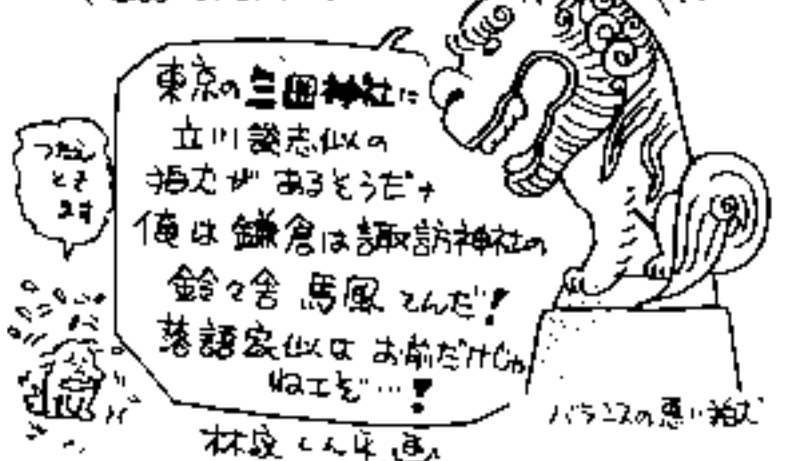 東京の三囲神社に
立川談志似の
狛犬があるそうだナ
俺は鎌倉は諏訪神社の
鈴々舎馬風てんだ!
落語家似はお前だけじゃ
ねエぞ…!
つたえ
とき
ます
バランスの悪い狛犬
林家
画